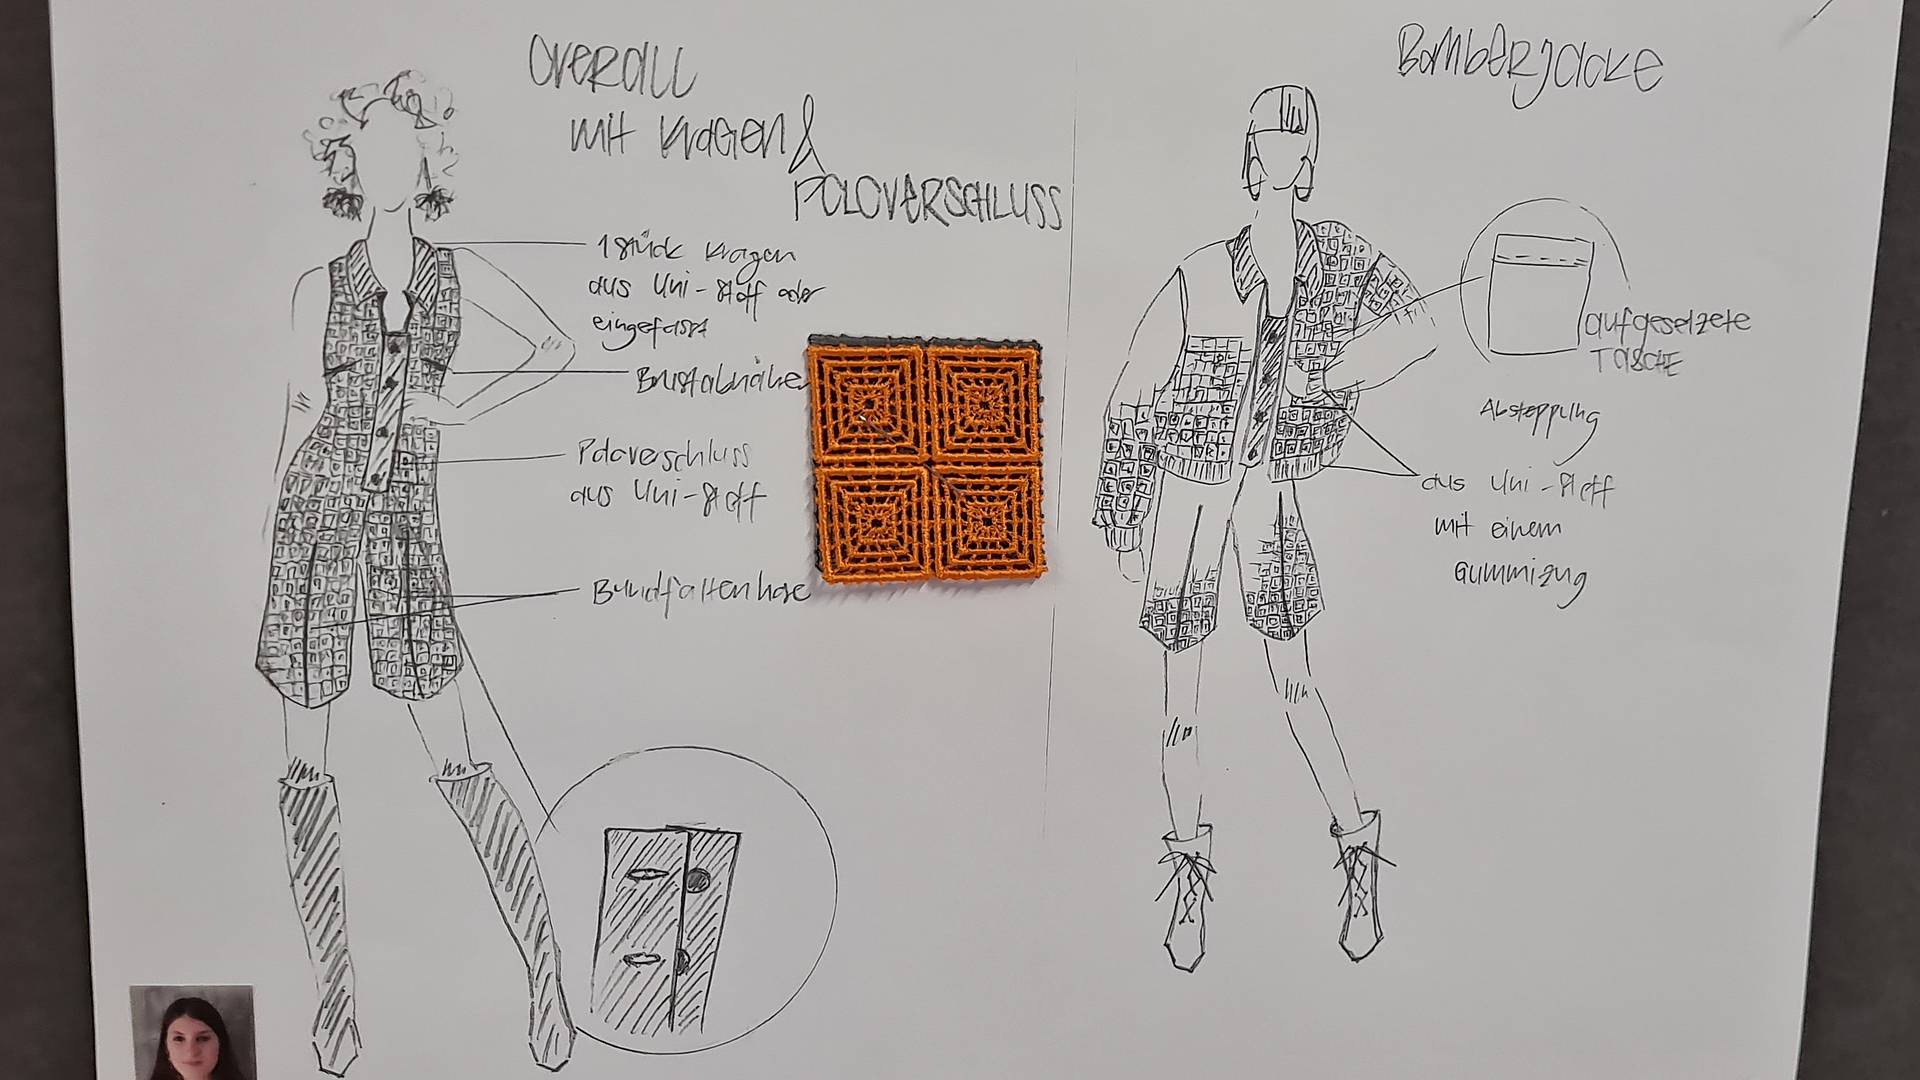 OVERALL
mit Kragen &
POLOVERSCHLUSS
1 Stück Kragen
aus Uni-Stoff oder
eingefasst
Brustabnäher
Poloverschluss
aus Uni-Stoff
Bundfaltenhose
Bomberjacke
aufgesetzte
TASCHE
Absteppung
aus Uni-Stoff
mit einem
Gummizug